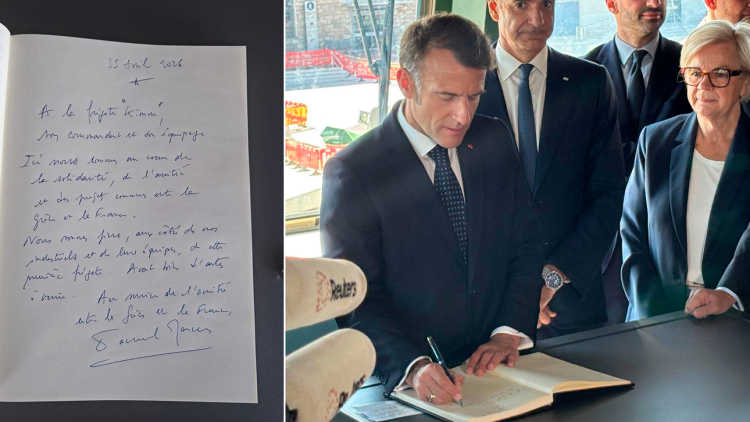 25 Avril 2026
A la frégate "Kimon",
son commandant et son équipage
Ici nous au cœur de
la solidarité, de l'amitié
et des projets communs entre la
Grèce et la France.
Nous sommes fiers, aux côtés de nos
industriels et de leurs équipes, de cette
première frégate. Avant bien d'autres
à venir. Au service de l'amitié
entre la Grèce et la France,
Reuters
Reuters